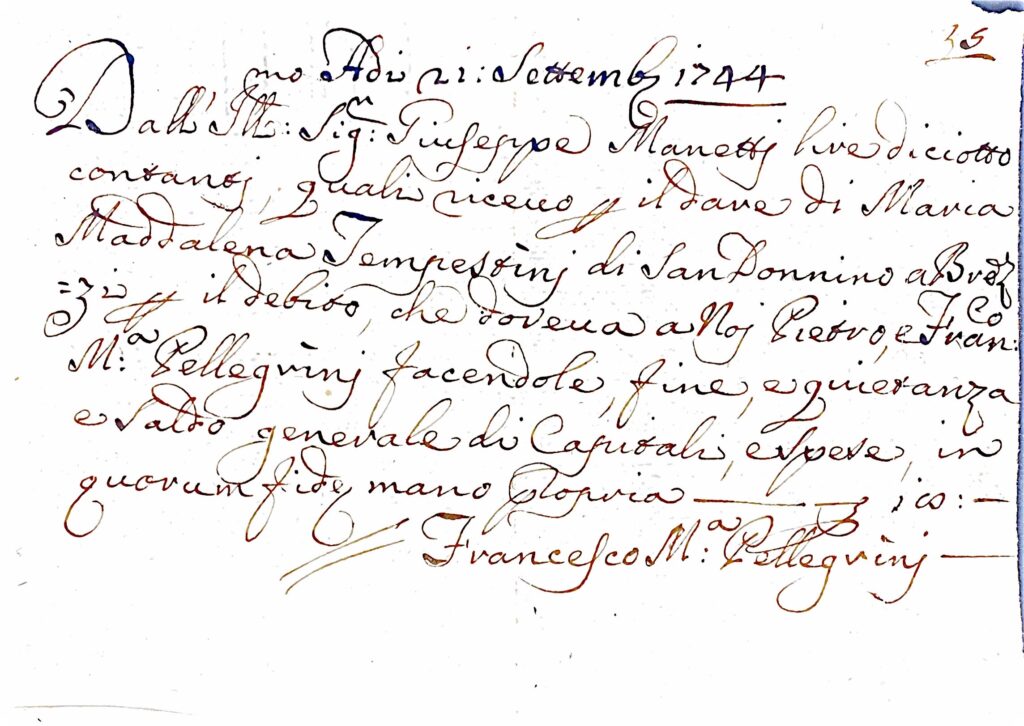 35
Adi 21: Settemb 1744
Dall' Ill:mo Sig:n Giuseppe Manettj lire diciotto
contantj, quali riceuo p il dare di Maria
Maddalena Tempestinj di San Donnino a Broz
=zi p il debito, che doveua a Noj Pietro, e Fran:co
M:a Pellegrinj facendole, fine, e quietanza
e saldo generale di Capitali, e spese, in
quorum fidem mano propria —
Francesco M:a Pellegrinj —